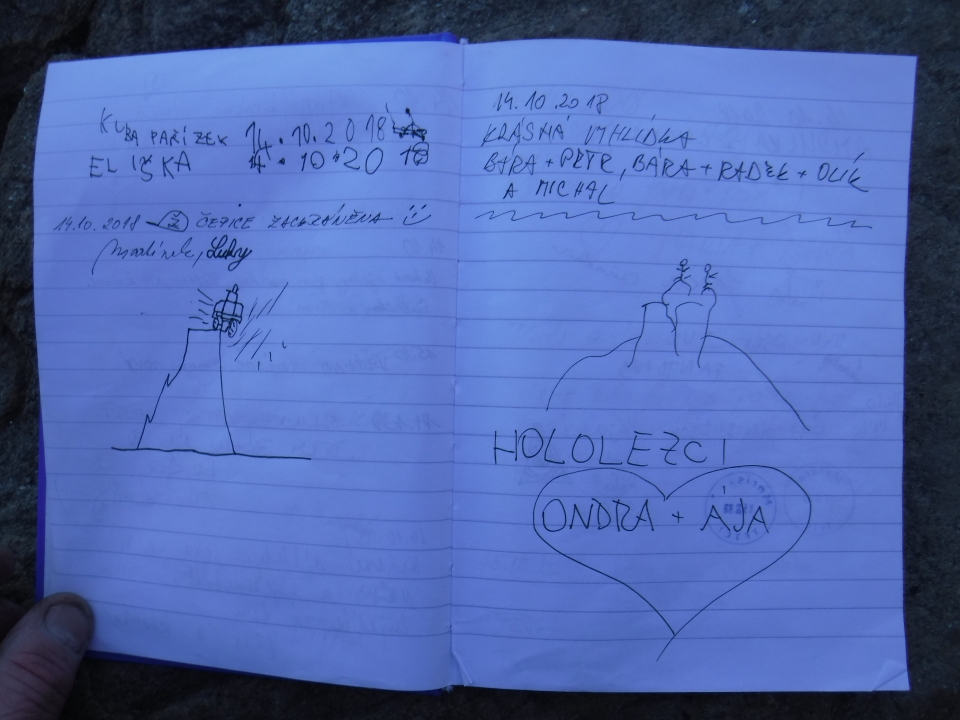 KUBA PAŘÍZEK 14.10.2018
ELIŠKA 14.10.2018
14.10.2018 - ČEPICE ZACHRÁNĚNA
14.10.2018
KRÁSNÁ VYHLÍDKA
BÁRA + PETR, BÁRA + RADEK + OLÍK
A MICHAL
HOLOLEZCI
ONDRA + ÁJA